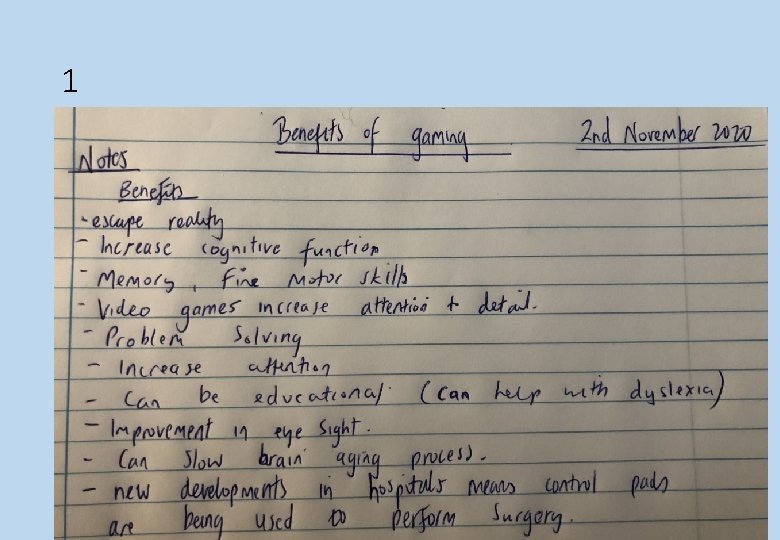 1
Benefits of gaming 2nd November 2020
Notes
Benefits
- escape reality
- Increase cognitive function
- Memory, Fine Motor skills
- Video games increase attention + detail.
- Problem Solving
- Increase attention
- Can be educational. (Can help with dyslexia)
- Improvement in eye sight.
- Can slow brain aging process.
- new developments in hospitals means control pads
are being used to perform surgery.